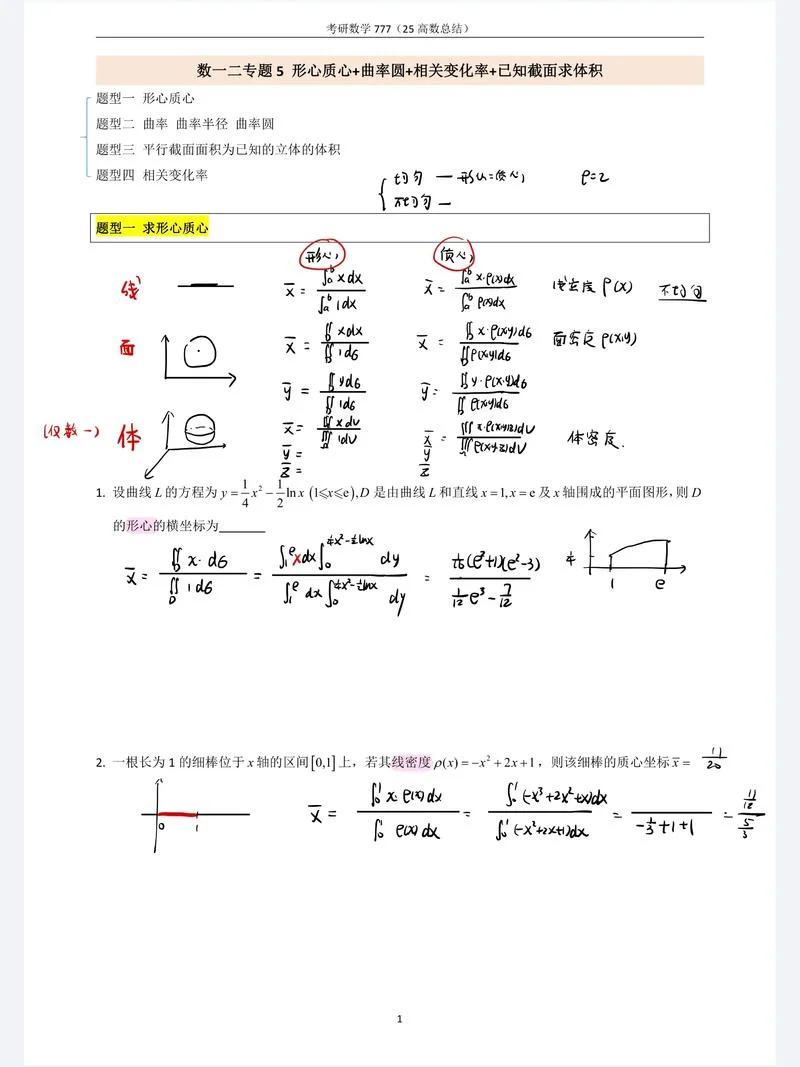 考研数学 777（25 高数总结）
数一二专题 5 形心质心+曲率圆+相关变化率+已知截面求体积
题型一 形心质心
题型二 曲率 曲率半径 曲率圆
题型三 平行截面面积为已知的立体的体积
题型四 相关变化率
均匀 — 形心=质心 ρ=2
不均匀 —
题型一 求形心质心
形心 质心
线 x̄ = ∫ₐᵇ x dx / ∫ₐᵇ 1 dx x̄ = ∫ₐᵇ x·ρ(x) dx / ∫ₐᵇ ρ(x) dx 线密度 ρ(x) 不均匀
面 x̄ = ∬_D x dx / ∬_D 1 dσ x̄ = ∬_D x·ρ(x,y) dσ / ∬_D ρ(x,y) dσ 面密度 ρ(x,y)
ȳ = ∬_D y dσ / ∬_D 1 dσ ȳ = ∬_D y·ρ(x,y) dσ / ∬_D ρ(x,y) dσ
(仅数一) 体 x̄ = ∭ x dv / ∭ 1 dv x̄ = ∭ x·ρ(x,y,z) dv / ∭ ρ(x,y,z) dv 体密度.
ȳ = ȳ
z̄ = z̄
1. 设曲线 L 的方程为 y = 1/4 x² − 1/2 ln x (1⩽x⩽e), D 是由曲线 L 和直线 x = 1, x = e 及 x 轴围成的平面图形，则 D
的形心的横坐标为______
x̄ = ∬_D x·dσ / ∬_D 1 dσ = ∫₁ᵉ x dx ∫₀^(¼x²−½lnx) dy / ∫₁ᵉ dx ∫₀^(¼x²−½lnx) dy = 1/16 (e²+1)(e²−3) / (1/12 e³ − 7/12) 1/4 1 e
2. 一根长为 1 的细棒位于 x 轴的区间 [0,1] 上，若其线密度 ρ(x) = −x² + 2x + 1，则该细棒的质心坐标 x̄ = 11/20
0 1 x̄ = ∫₀¹ x·ρ(x) dx / ∫₀¹ ρ(x) dx = ∫₀¹ (−x³+2x²+x) dx / ∫₀¹ (−x²+2x+1) dx = / (−1/3+1+1) = 11/12 / 5/3
1